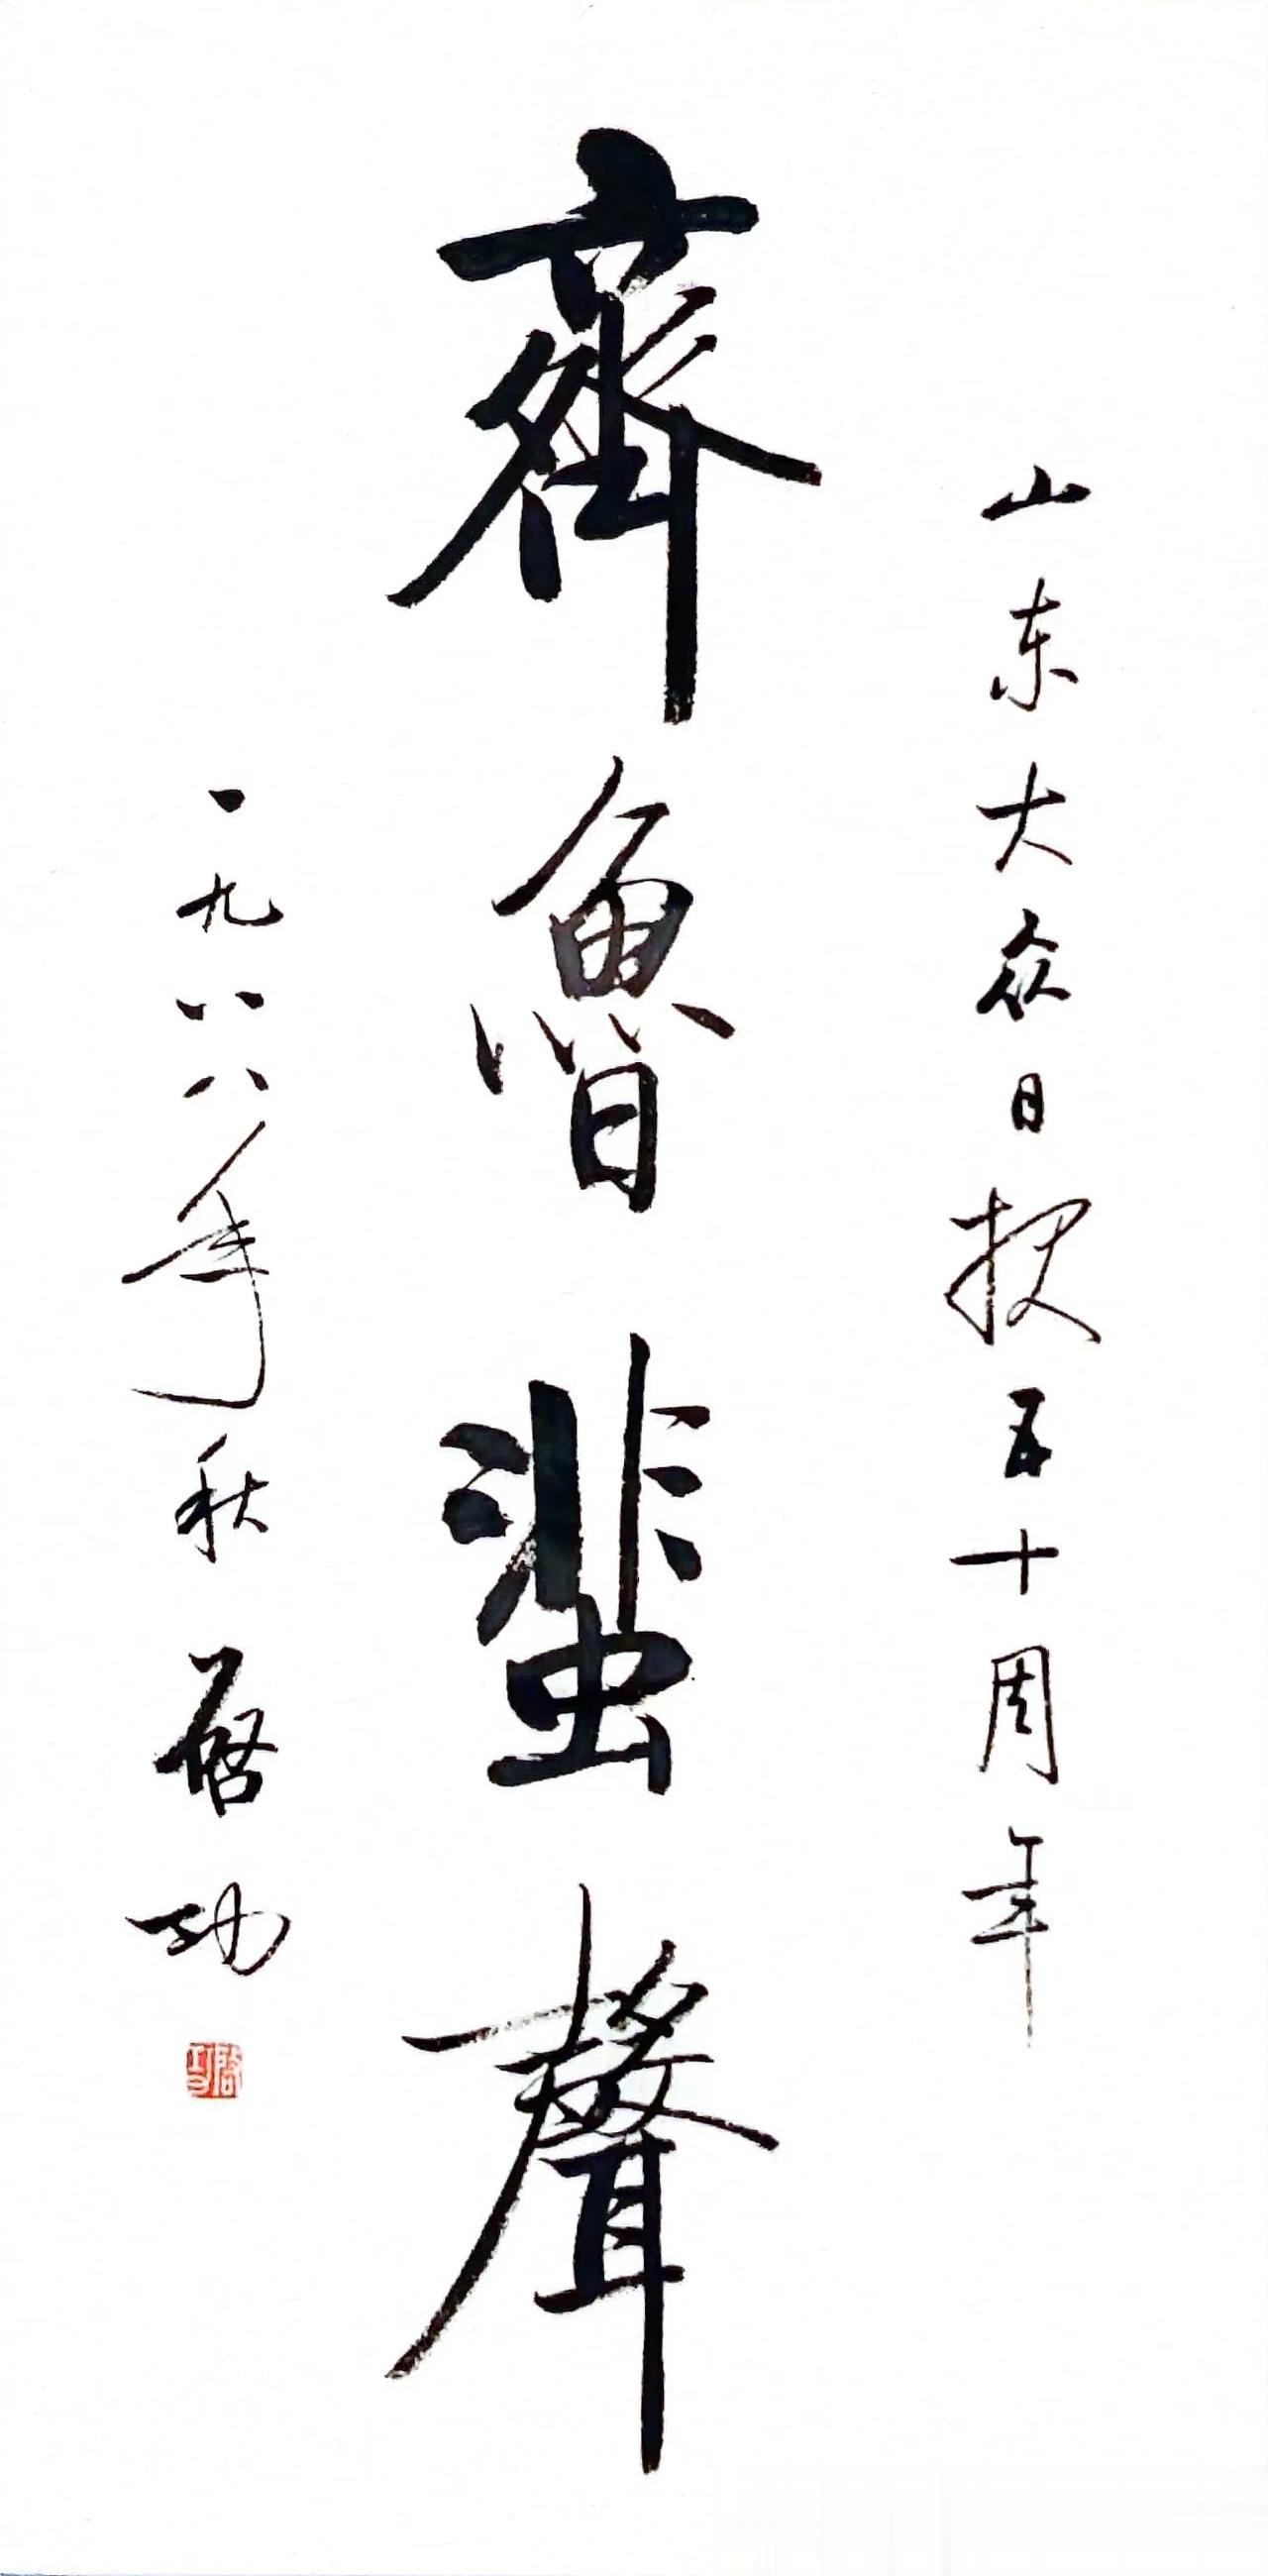 山东大众日报五十周年
齊魯蜚聲
一九八八年秋 啓功
啓功